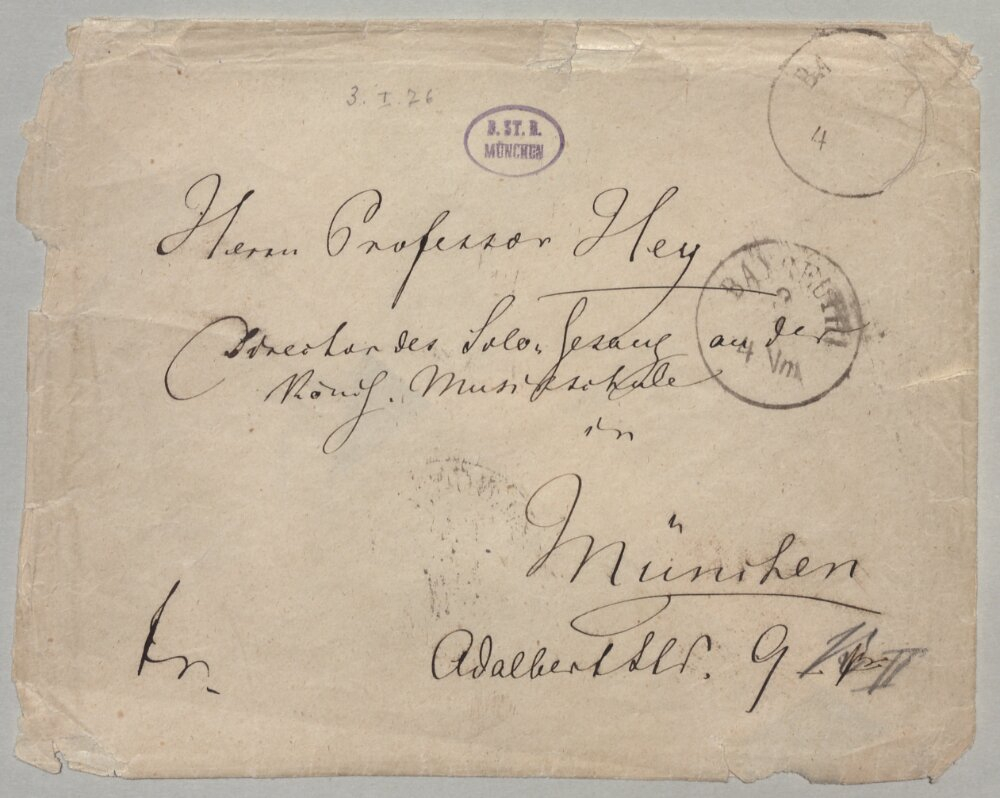 3. I. 76
B. ST. B.
MÜNCHEN
BA
4
Herrn Professor Hey
BAYREUTH
3
4 Vm
Director des Solo-Gesang an der
Königl. Musikschule
in
München
fr.
Adalbertstr. 9
II